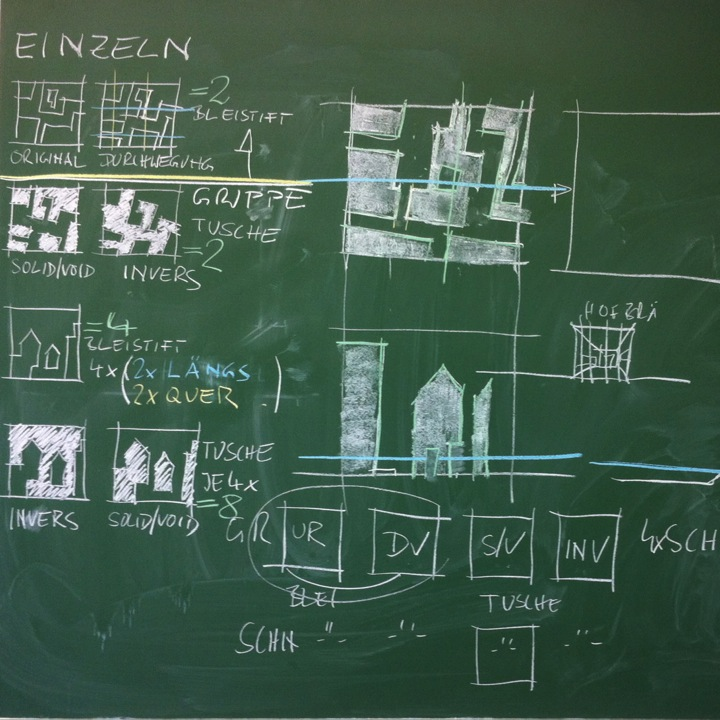 EINZELN
=2
BLEISTIFT
ORIGINAL DURCHWEGUNG
GRUPPE
TUSCHE
=2
SOLID/VOID INVERS
HOFBRÄ
=4
BLEISTIFT
4x (2x LÄNGS
2x QUER)
TUSCHE
JE 4x
=8
INVERS SOLID/VOID
GR UR DV S/V INV 4xSCH
BLEI TUSCHE
SCHN -"- -"- -"- -"-